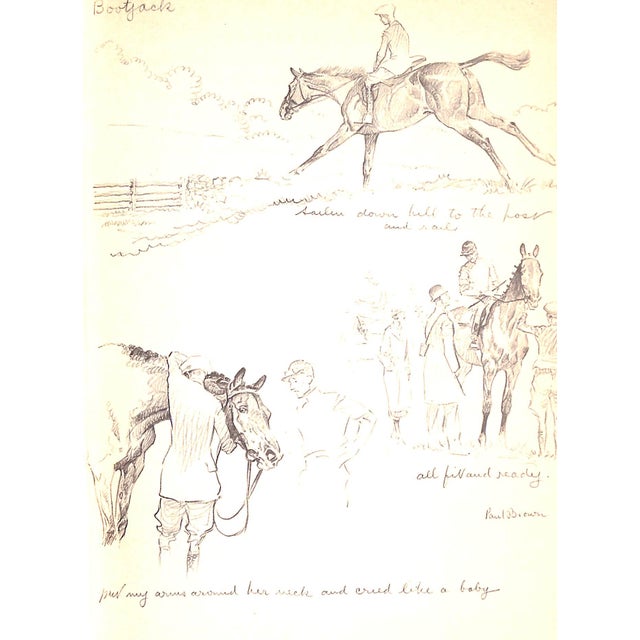 Bootjack
Sailin down hill to the post
and rails
all fit and ready.
Paul Brown
put my arms around her neck and cried like a baby